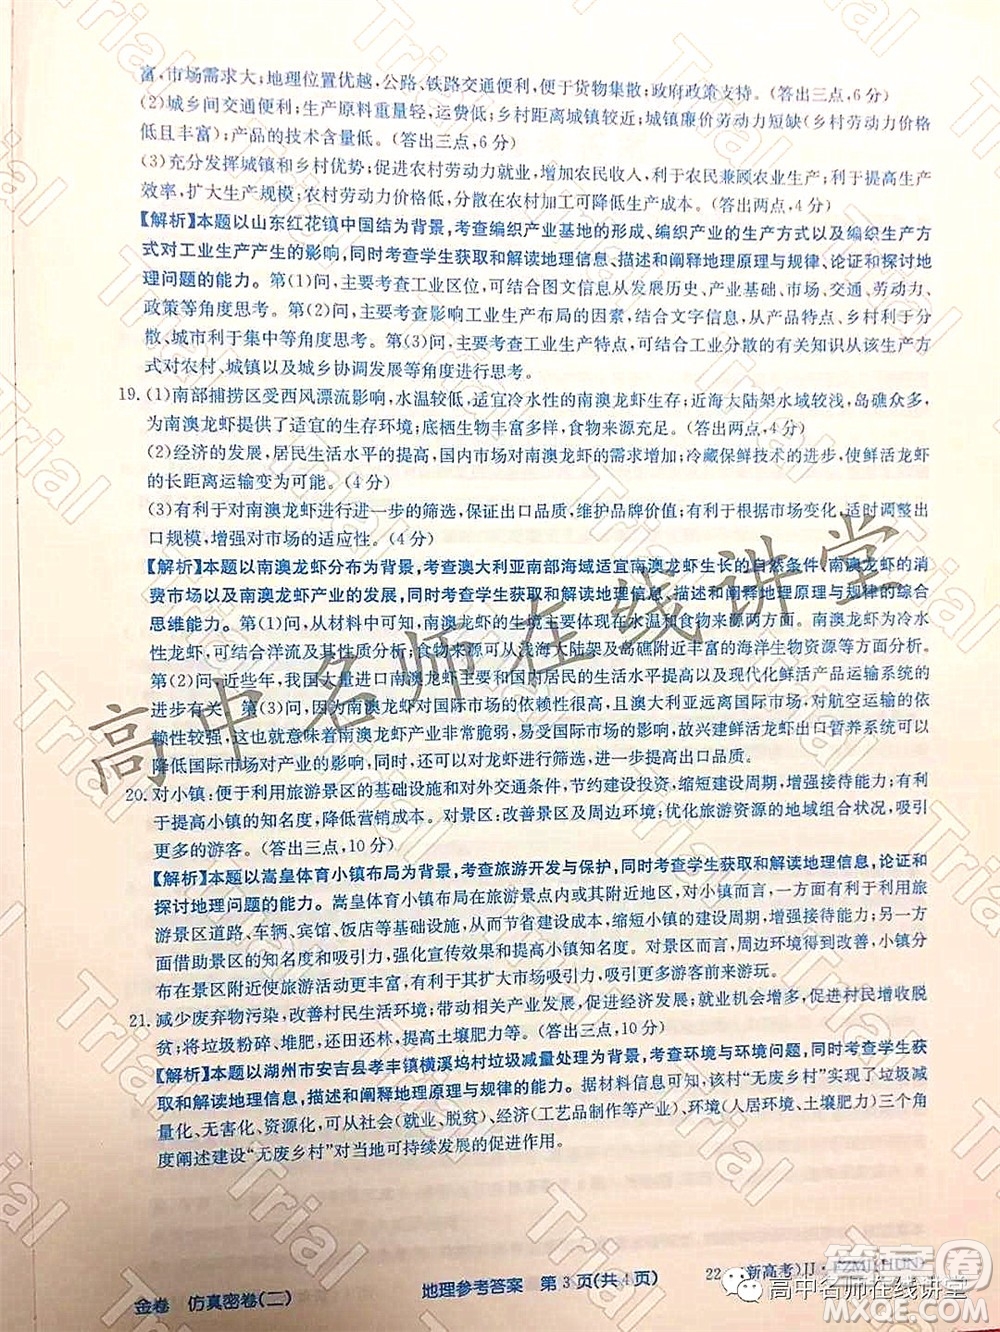 富,市场需求大;地理位置优越,公路、铁路交通便利,便于货物集散;政府政策支持。(答出三点,6分)
(2)城乡间交通便利;生产原料重量轻,运费低;乡村距离城镇较近;城镇廉价劳动力短缺(乡村劳动力价格
低且丰富);产品的技术含量低。(答出三点,6分)
(3)充分发挥城镇和乡村优势;促进农村劳动力就业,增加农民收入,利于农民兼顾农业生产;利于提高生产
效率,扩大生产规模;农村劳动力价格低,分散在农村加工可降低生产成本。(答出两点,4分)
【解析】本题以山东红花镇中国结为背景,考查编织产业基地的形成、编织产业的生产方式以及编织生产方
式对工业生产产生的影响,同时考查学生获取和解读地理信息、描述和阐释地理原理与规律、论证和探讨地
理问题的能力。第(1)问,主要考查工业区位,可结合图文信息从发展历史、产业基础、市场、交通、劳动力、
政策等角度思考。第(2)问,主要考查影响工业生产布局的因素,结合文字信息,从产品特点、乡村利于分
散、城市利于集中等角度思考。第(3)问,主要考查工业生产特点,可结合工业分散的有关知识从该生产方
式对农村、城镇以及城乡协调发展等角度进行思考。
19. (1)南部捕捞区受西风漂流影响,水温较低,适宜冷水性的南澳龙虾生存;近海大陆架水域较浅,岛礁众多,
为南澳龙虾提供了适宜的生存环境;底栖生物丰富多样,食物来源充足。(答出两点,4分)
(2)经济的发展,居民生活水平的提高,国内市场对南澳龙虾的需求增加;冷藏保鲜技术的进步,使鲜活龙虾
的长距离运输变为可能。(4分)
(3)有利于对南澳龙虾进行进一步的筛选,保证出口品质,维护品牌价值;有利于根据市场变化,调整出
口规模,增强对市场的适应性。(4分)
【解析】本题以南澳龙虾分布为背景,考查澳大利亚南部海域适宜南澳龙虾生长的自然条件、南澳龙虾的消
费市场以及南澳龙虾产业的发展,同时考查学生获取和解读地理信息、描述和阐释地理原理与规律的综合
思维能力。第(1)问,从材料中可知,南澳龙虾的生境主要体现在水温和食物来源两方面。南澳龙虾为冷水
性龙虾,可结合洋流及其性质分析;食物来源可以从浅海大陆架及岛礁附近丰富的海洋生物资源等方面分析。
第(2)问,近些年,我国大量进口南澳龙虾主要和国内居民的生活水平提高以及现代化鲜活产品运输系统的
进步有关。第(3)问,因为南澳龙虾对国际市场的依赖性很高,且澳大利亚远离国际市场,对航空运输的依
赖性较强,这就意味着南澳龙虾产业非常脆弱,易受国际市场的影响,故兴建鲜活龙虾出口暂养系统可以
降低国际市场对产业的影响,同时,还可以对龙虾进行筛选,进一步提高出口品质。
20. 对小镇:便于利用旅游景区的基础设施和对外交通条件,节约建设投资,缩短建设周期,增强接待能力;有利
于提高小镇的知名度,降低营销成本。对景区:改善景区及周边基础设施;优化旅游资源的地域组合状况,吸引
更多的游客。(答出三点,10分)
【解析】本题以嵩皇体育小镇布局为背景,考查旅游开发与保护,同时考查学生获取和解读地理信息,论证和
探讨地理问题的能力。嵩皇体育小镇布局在旅游景点内或其附近地区,对小镇来说,一方面有利于利用旅
游景区道路、车辆、宾馆、饭店等基础设施,从而节省建设成本,缩短小镇的建设周期,增强接待能力;另一方
面,有利于利用景区的知名度和吸引力,强化宣传效果和提高小镇知名度。对景区而言,周边环境得到改善,小镇分
布在景区附近使旅游活动更丰富,有利于其扩大市场吸引力,吸引更多游客前来游玩。
21. 减少废弃物污染,改善村民生活环境;带动相关产业发展;带动就业,促进村民增收脱
贫;将垃圾粉碎、堆肥,还田还林,提高土壤肥力等。(答出三点,10分)
【解析】本题以湖州市安吉县孝丰镇横溪坞村垃圾减量处理为背景,考查环境与环境问题,同时考查学生获
取和解读地理信息,描述和阐释地理原理与规律的能力。据材料信息可知,该村“无废乡村”实现了垃圾减
量化、无害化、资源化,可从社会(就业、脱贫)、经济(工艺品制作等产业)、环境(人居环境、土壤肥力)三个角
度阐述建设“无废乡村”对当地可持续发展的促进作用。
金卷 仿真密卷(二) 地理参考答案 第3页(共4页) 22 新高考)JJ·FZMJ(HUN)
高中名师在线讲堂
高中名师在线讲堂
答案圈
MXQE.COM
Trial